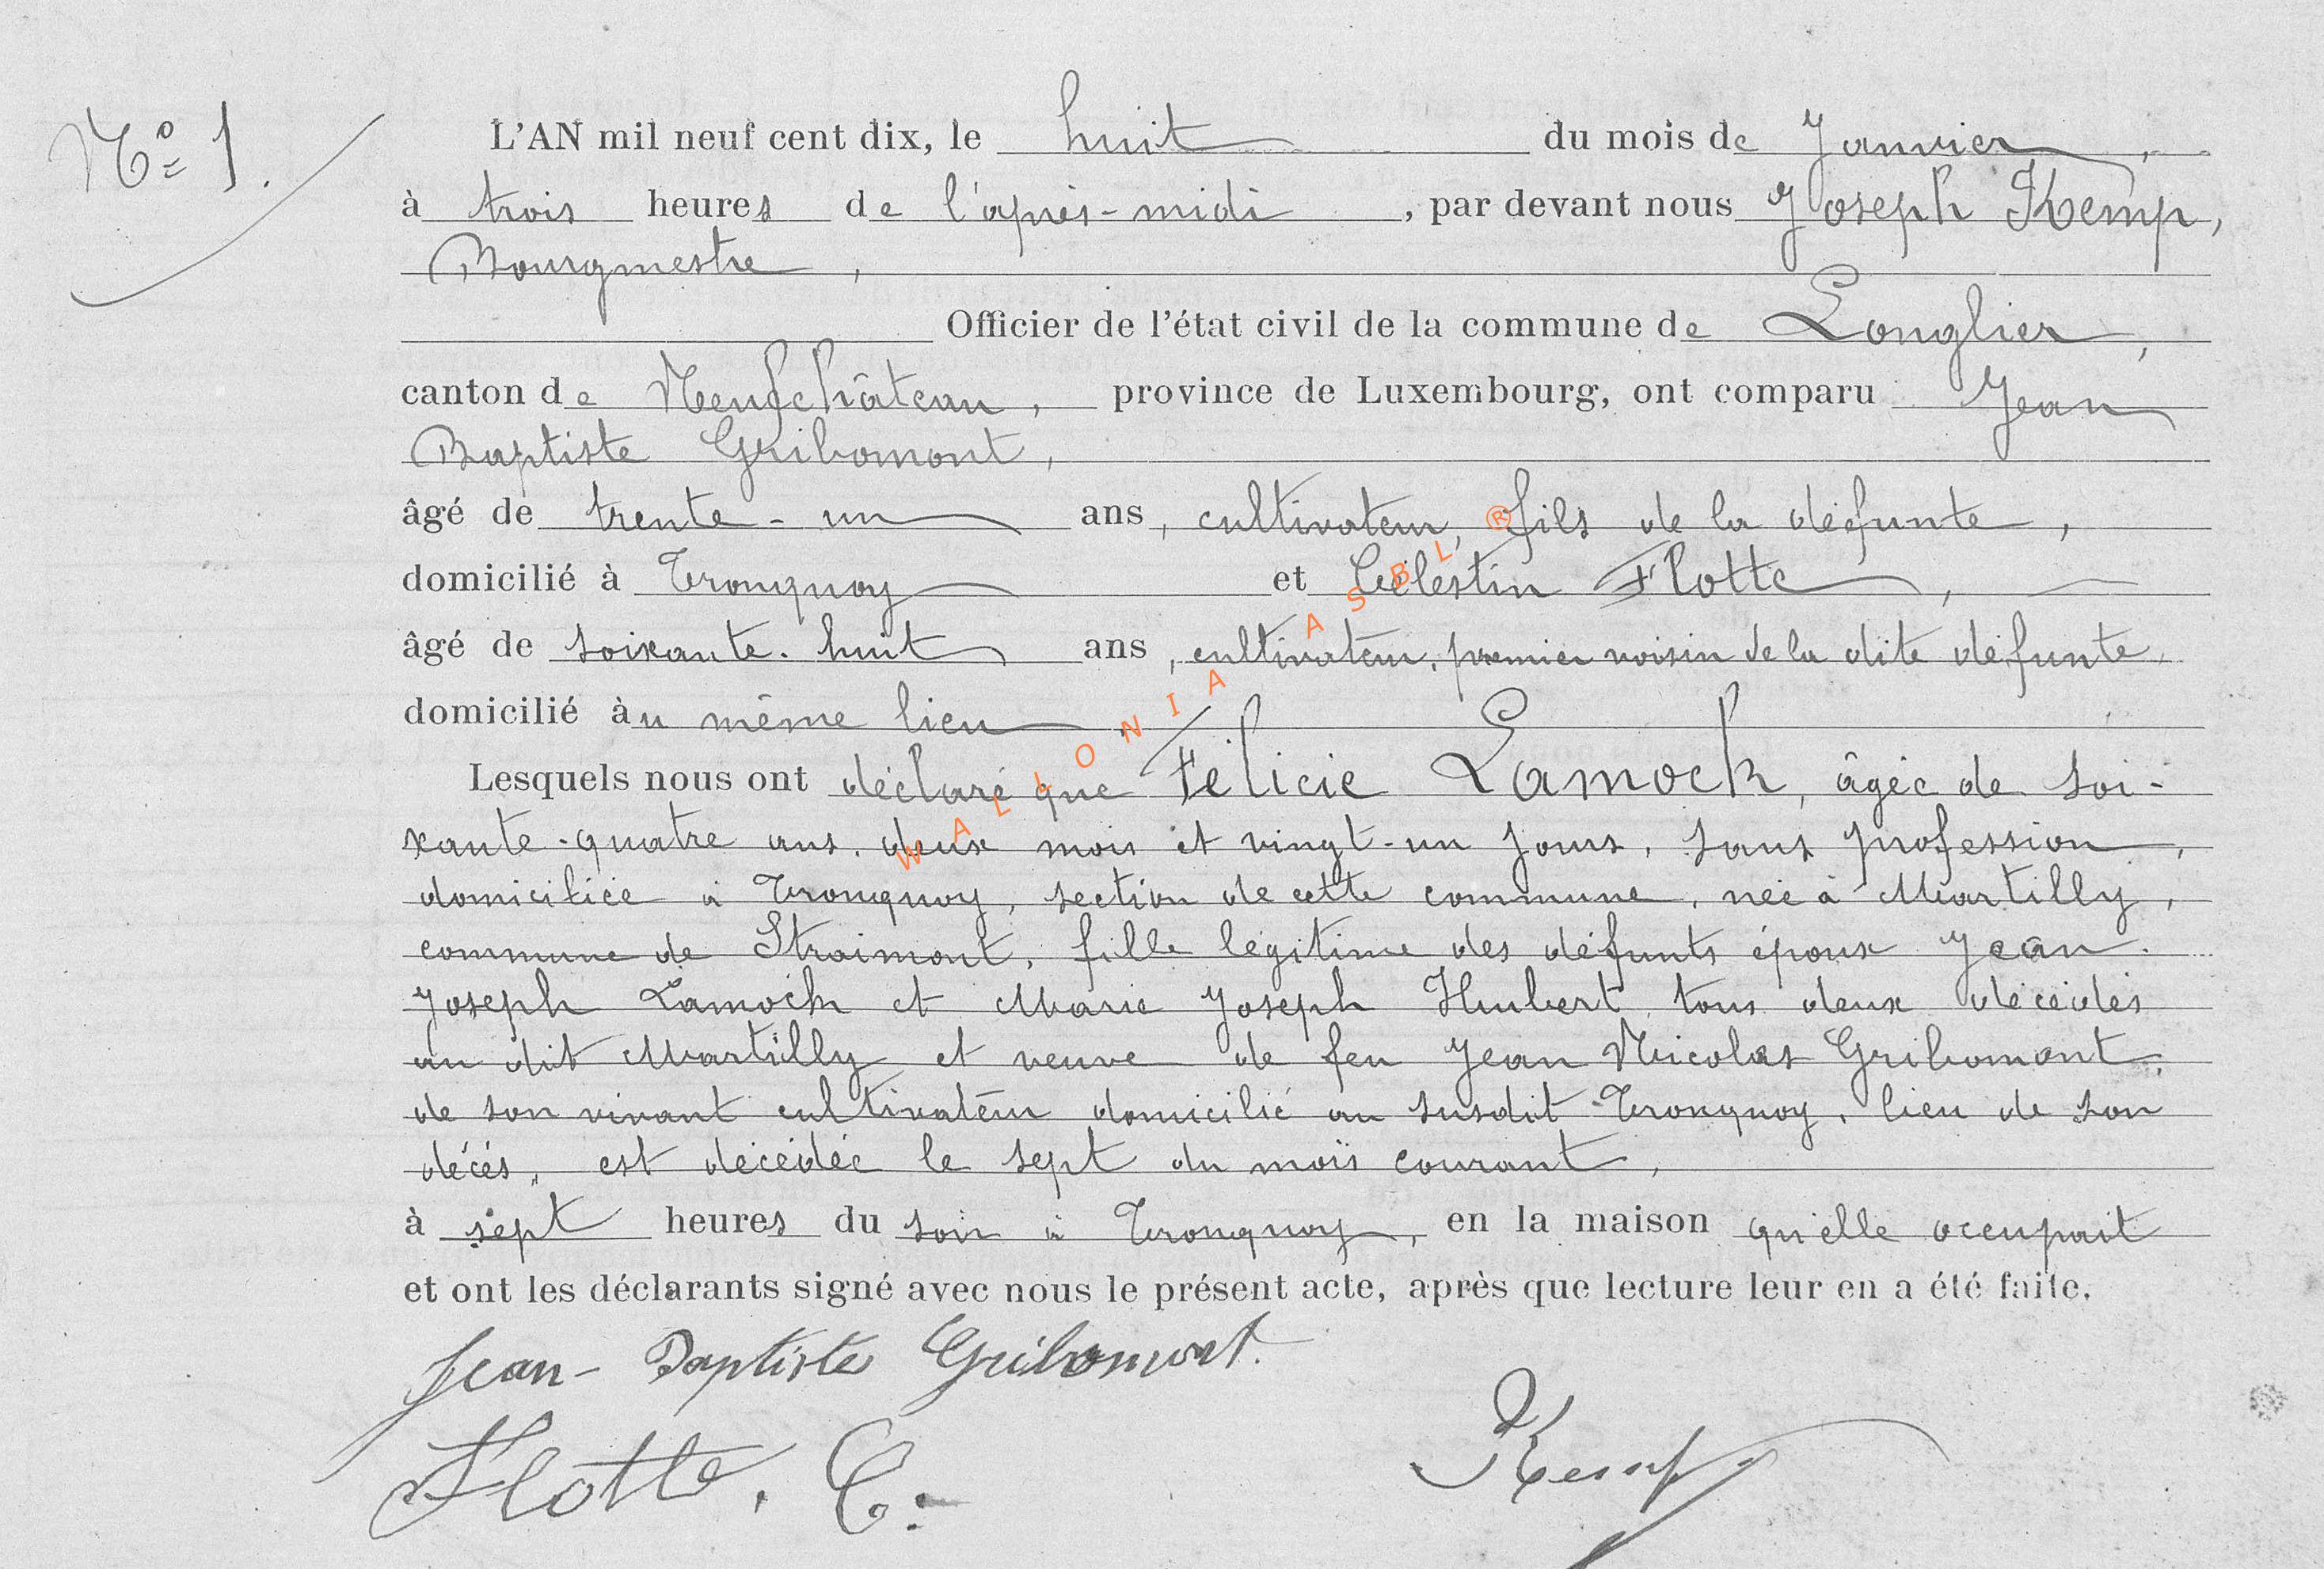 Nº 1.
L'AN mil neuf cent dix, le huit du mois de Janvier,
à trois heures de l'après-midi, par devant nous Joseph Kemp,
Bourgmestre,
Officier de l'état civil de la commune de Longlier,
canton de Neufchâteau, province de Luxembourg, ont comparu Jean
Baptiste Gribomont,
âgé de trente-un ans, cultivateur, fils de la défunte,
domicilié à Tronquoy et Célestin Flotte,
âgé de soixante-huit ans, cultivateur, premier voisin de la dite défunte,
domicilié àu même lieu,
Lesquels nous ont déclaré que Félicie Lamock, âgée de soi-
xante-quatre ans, deux mois et vingt-un jours, sans profession,
domiciliée à Tronquoy, section de cette commune, née à Martilly,
commune de Straimont, fille légitime des défunts époux Jean-
Joseph Lamock et Marie Joseph Hubert, tous deux décédés
au dit Martilly et veuve de feu Jean Nicolas Gribomont,
de son vivant cultivateur domicilié au susdit Tronquoy, lieu de son
décés, est décédée le sept du mois courant,
à sept heures du soir à Tronquoy, en la maison qu'elle occupait
et ont les déclarants signé avec nous le présent acte, après que lecture leur en a été faite.
Jean-Baptiste Gribomont.
Flotte. C. Kemp
WALLONIA ASBL ®